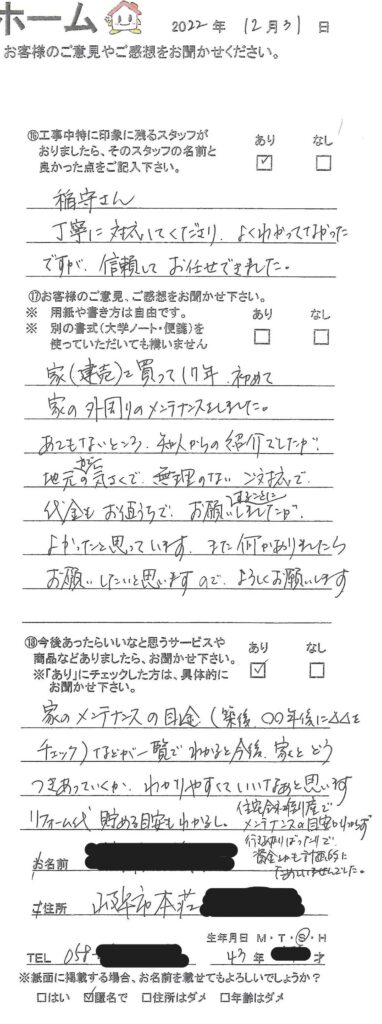 ホーム 2022年 12月31日
お客様のご意見やご感想をお聞かせください。
⑯工事中特に印象に残るスタッフが
おりましたら、そのスタッフの名前と
良かった点をご記入下さい。
あり なし
稲守さん
丁寧に対応してくださり、よくわかってなかった
ですが、信頼して お任せできました。
⑰お客様のご意見、ご感想をお聞かせ下さい。
※ 用紙や書き方は自由です。
※ 別の書式(大学ノート・便箋)を
使っていただいても構いません
あり なし
家(建売)を買って17年、初めて
家の外回りのメンテナンスをしました。
あてもないところ、知人からの紹介でしたが、
地元の気さくで、無理のない ご対応で、
代金もお値うちで、お願いすることに
しましたが、
よかったと思っています。また何かありましたら
お願いしたいと思いますので、よろしくお願いします
⑱今後あったらいいなと思うサービスや
商品などありましたら、お聞かせ下さい。
※「あり」にチェックした方は、具体的に
お聞かせ下さい。
あり なし
家のメンテナンスの目安(築後 〇〇年後に△△を
チェック)などが一覧でわかると今後、家とどう
つきあっていくか、わかりやすくていいなあと思います
リフォーム代 貯める目安もわかるし。
メンテナンスの目安わからず
行きあたりばったりで
お名前
ご住所 岐阜市本荘
生年月日 M・T・S・H
TEL 058- 43年 才
※紙面に掲載する場合、お名前を載せてもよろしいでしょうか?
□はい ☑匿名で □住所はダメ □年齢はダメ